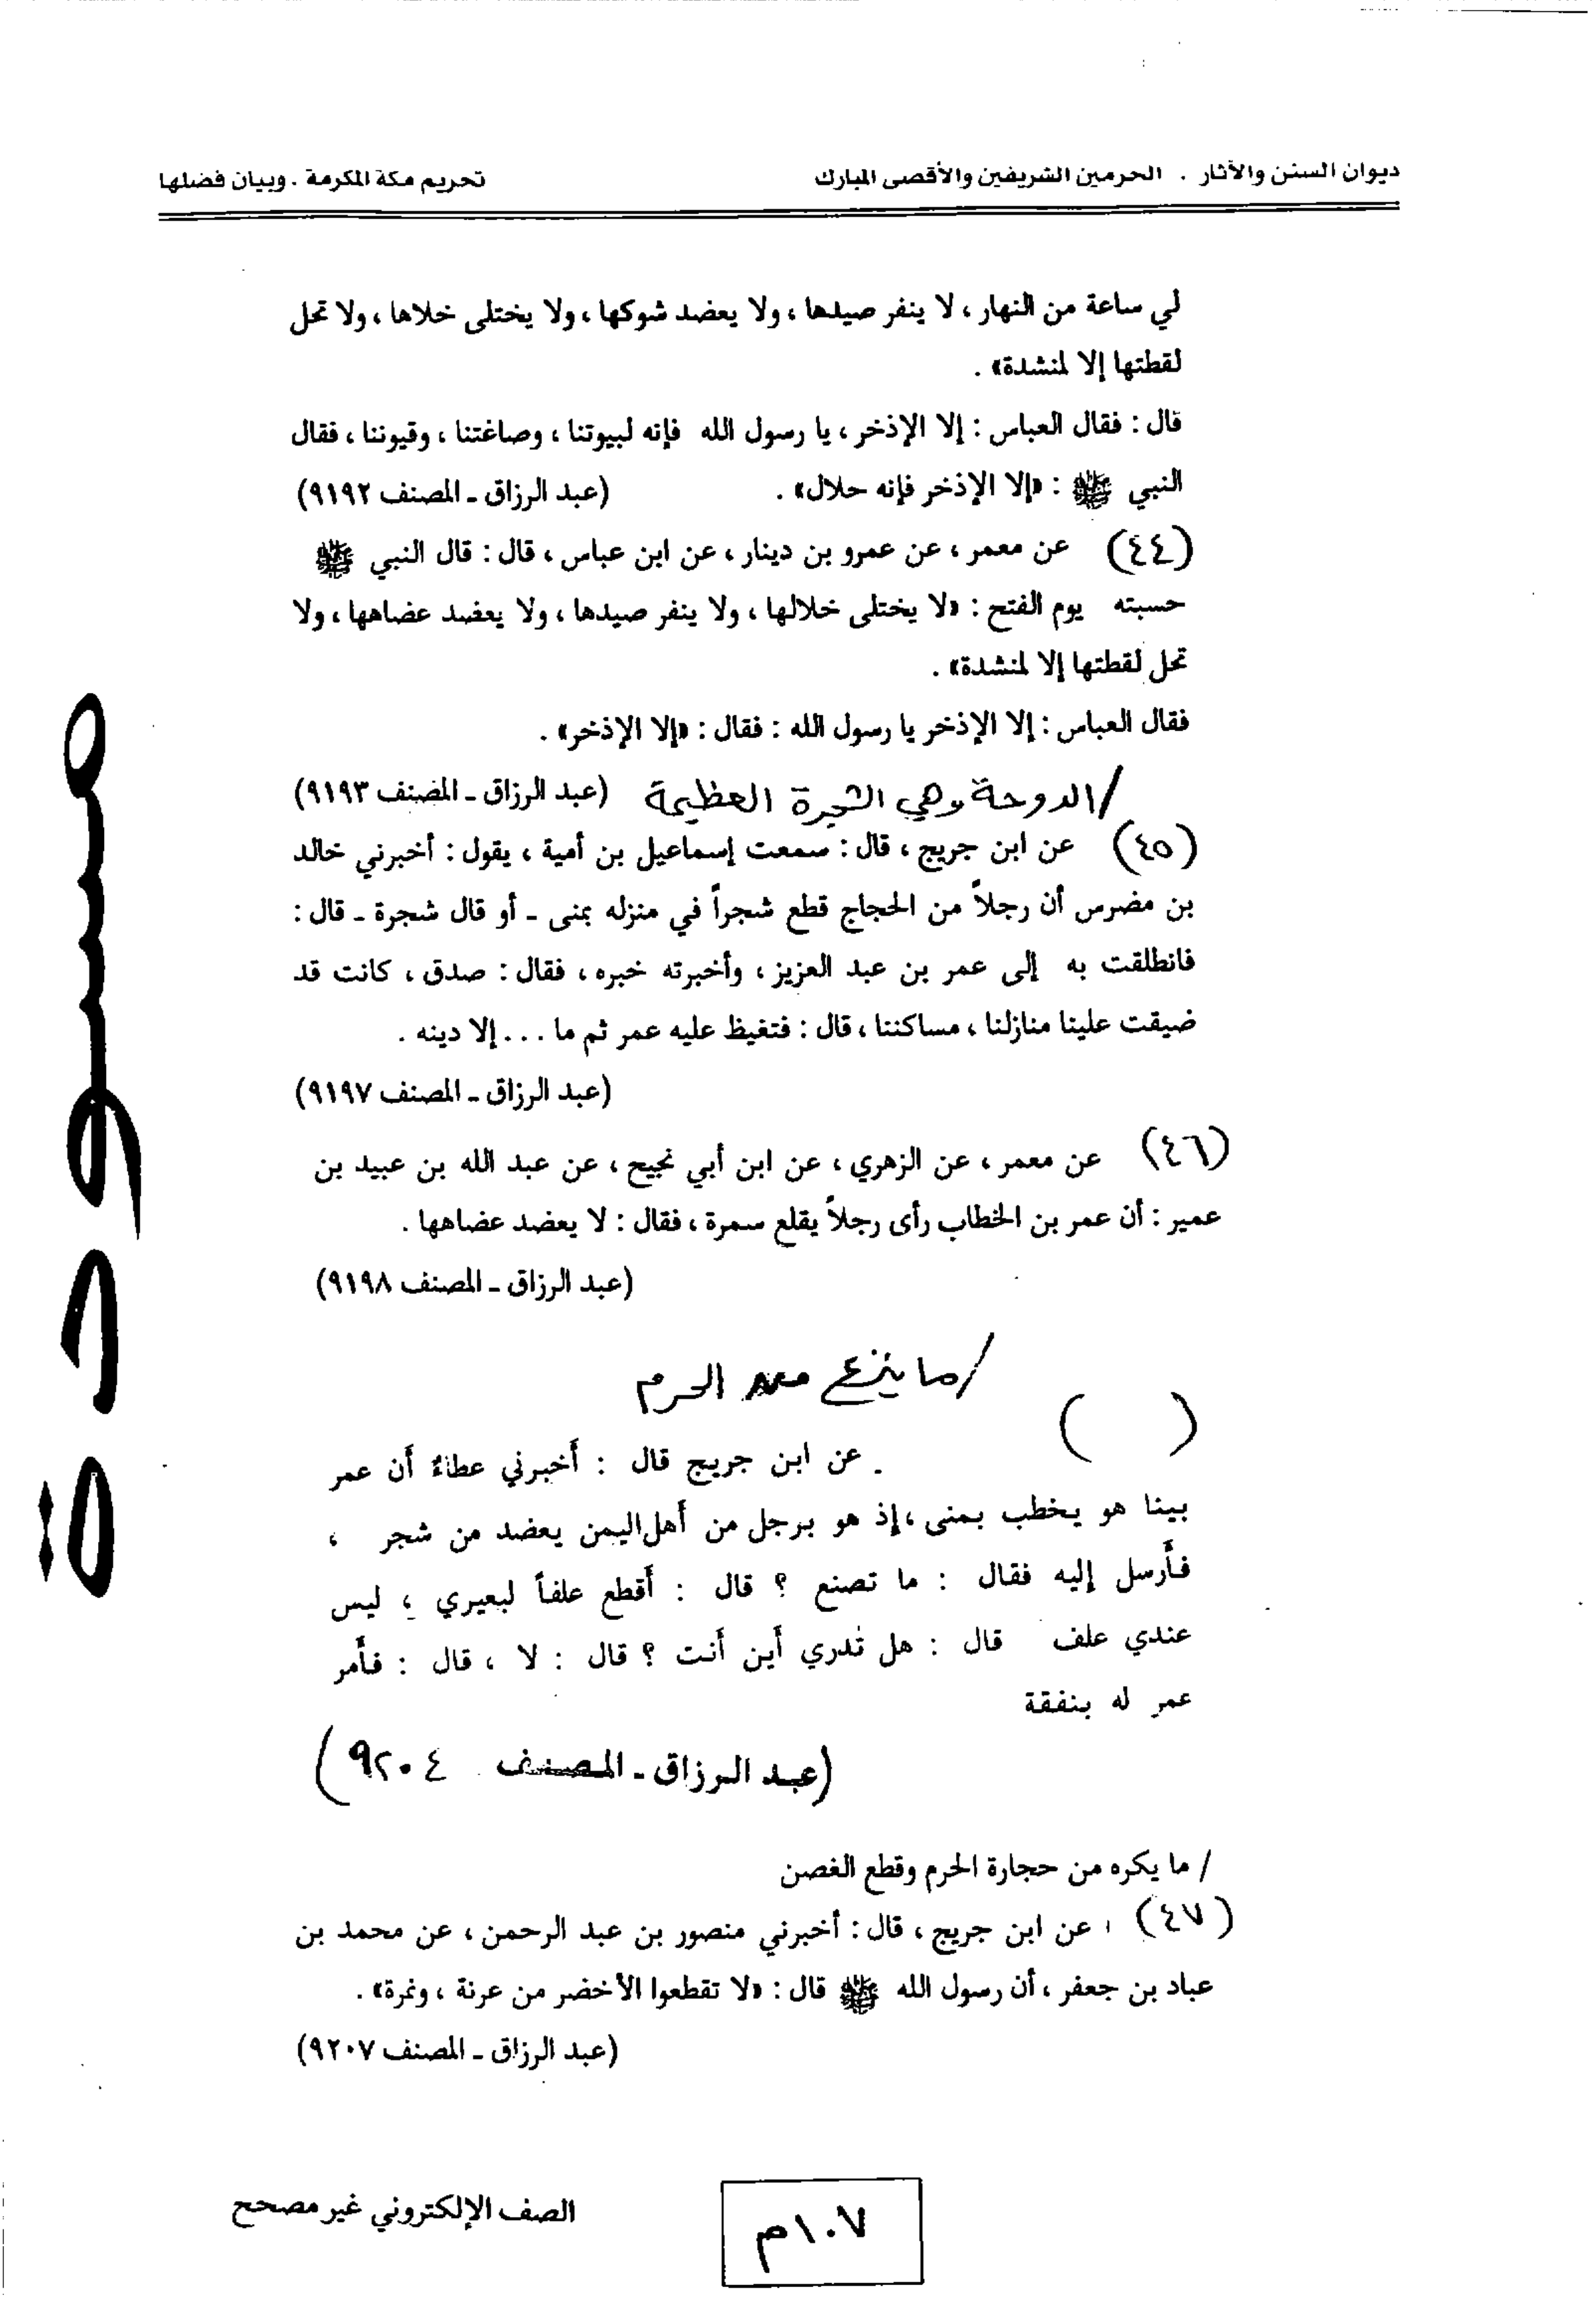 ديوان السنن والآثار . الحرمين الشريفين والأقصى المبارك
تحريم مكة المكرمة . وبيان فضلها
لي ساعة من النهار ، لا ينفر صيدها ، ولا يعضد شوكها ، ولا يختلى خلاها ، ولا تحل
لقطتها إلا لمنشدة» .
قال : فقال العباس : إلا الإذخر ، يا رسول الله فإنه لبيوتنا ، وصاغتنا ، وقيوننا ، فقال
النبي ﷺ : «إلا الإذخر فإنه حلال» . (عبد الرزاق ـ المصنف ٩١٩٢)
(٤٤) عن معمر ، عن عمرو بن دينار ، عن ابن عباس ، قال : قال النبي ﷺ
حسبته يوم الفتح : «لا يختلى خلالها ، ولا ينفر صيدها ، ولا يعضد عضاهها ، ولا
تحل لقطتها إلا لمنشدة» .
فقال العباس : إلا الإذخر يا رسول الله : فقال : «إلا الإذخر» .
/ الدوحة وهي الشجرة العظيمة (عبد الرزاق ـ المصنف ٩١٩٣)
(٤٥) عن ابن جريج ، قال : سمعت إسماعيل بن أمية ، يقول : أخبرني خالد
بن مضرس أن رجلاً من الحجاج قطع شجراً في منزله بمنى ـ أو قال شجرة ـ قال :
فانطلقت به إلى عمر بن عبد العزيز ، وأخبرته خبره ، فقال : صدق ، كانت قد
ضيقت علينا منازلنا ، مساكننا ، قال : فتغيظ عليه عمر ثم ما . . . إلا دينه .
(عبد الرزاق ـ المصنف ٩١٩٧)
(٤٦) عن معمر ، عن الزهري ، عن ابن أبي نجيح ، عن عبد الله بن عبيد بن
عمير : أن عمر بن الخطاب رأى رجلاً يقلع سمرة ، فقال : لا يعضد عضاهها .
(عبد الرزاق ـ المصنف ٩١٩٨)
/ ما ينزع من الحرم
( ) عن ابن جريج قال : أخبرني عطاءٌ أن عمر
بينا هو يخطب بمنى ، إذ هو برجل من أهل اليمن يعضد من شجر ،
فأرسل إليه فقال : ما تصنع ؟ قال : أقطع علفاً لبعيري ، ليس
عندي علف قال : هل تدري أين أنت ؟ قال : لا ، قال : فأمر
عمر له بنفقة
(عبد الرزاق ـ المصنف ٩٢٠٤)
/ ما يكره من حجارة الحرم وقطع الغصن
(٤٧) عن ابن جريج ، قال : أخبرني منصور بن عبد الرحمن ، عن محمد بن
عباد بن جعفر ، أن رسول الله ﷺ قال : «لا تقطعوا الأخضر من عرنة ، ونمرة» .
(عبد الرزاق ـ المصنف ٩٢٠٧)
مسودة
١٠٧م
الصف الإلكتروني غير مصحح